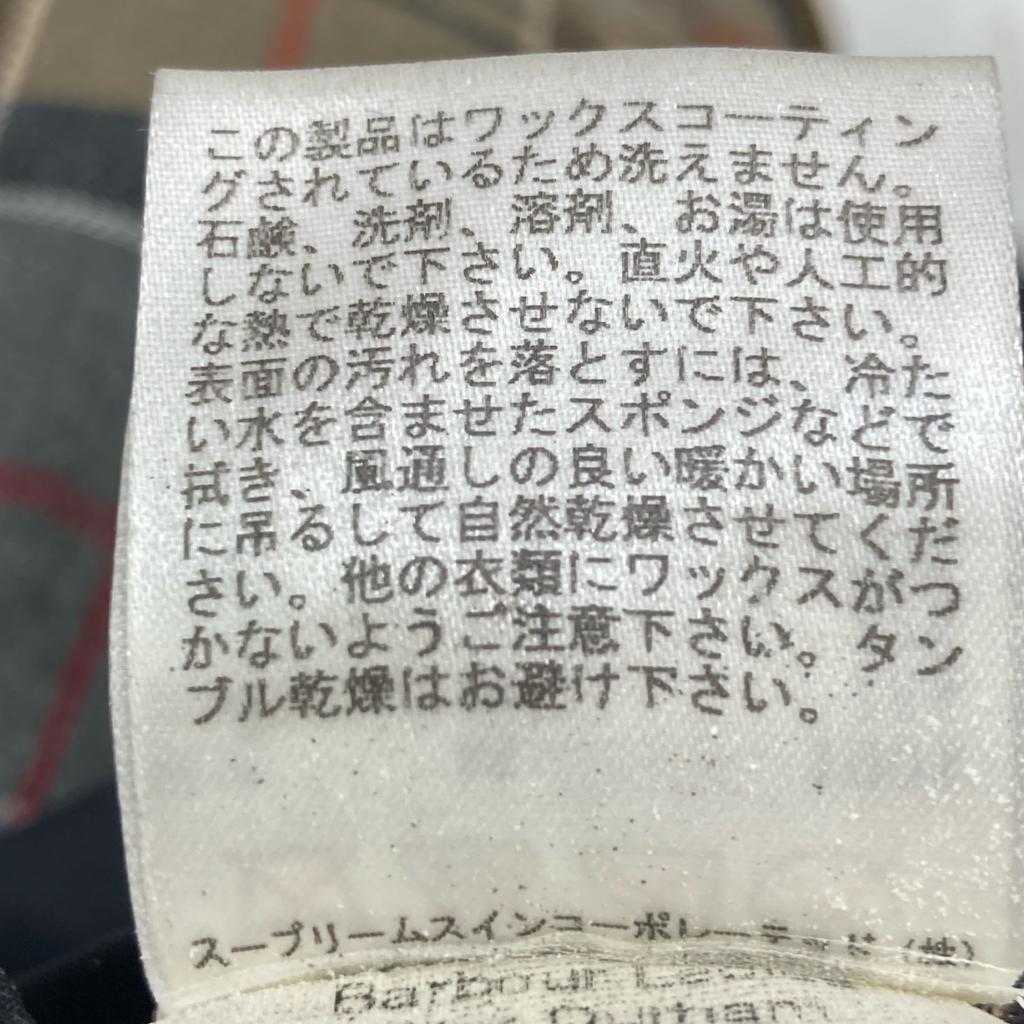 この製品はワックスコーティン
グされているため洗えません。
石鹸、洗剤、溶剤、お湯は使用
しないで下さい。直火や人工的
な熱で乾燥させないで下さい。
表面の汚れを落とすには、冷た
い水を含ませたスポンジなどで
拭き、風通しの良い暖かい場所
に吊るして自然乾燥させてくだ
さい。他の衣類にワックスがつ
かないようご注意下さい。タン
ブル乾燥はお避け下さい。
スープリームスインコーポレーテッド(株)
Barbour